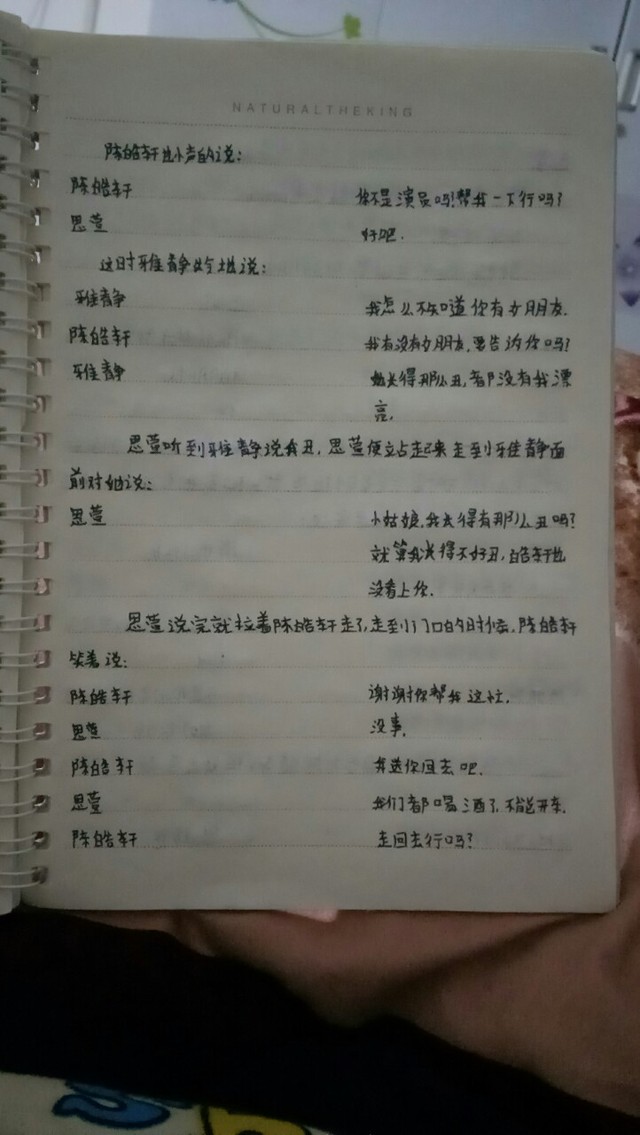 NATURALTHEKING
陈皓轩也小声的说:
陈皓轩 你不是演员吗!帮我一下行吗?
思萱 好吧.
这时雅静地说:
雅静 我怎么不知道你有女朋友.
陈皓轩 我有没有女朋友,要告诉你吗?
雅静 她长得那么丑,都没有我漂
亮,
思萱听到雅静说我丑,思萱便站起来走到雅静面
前对她说:
思萱 小姑娘,我长得有那么丑吗?
就算我长得不好丑,皓轩也
没看上你.
思萱说完就拉着陈皓轩走了,走到门口的时候,陈皓轩
笑着说:
陈皓轩 谢谢你帮我这忙.
思萱 没事.
陈皓轩 我送你回去吧.
思萱 我们都喝酒了,不能开车.
陈皓轩 走回去行吗?